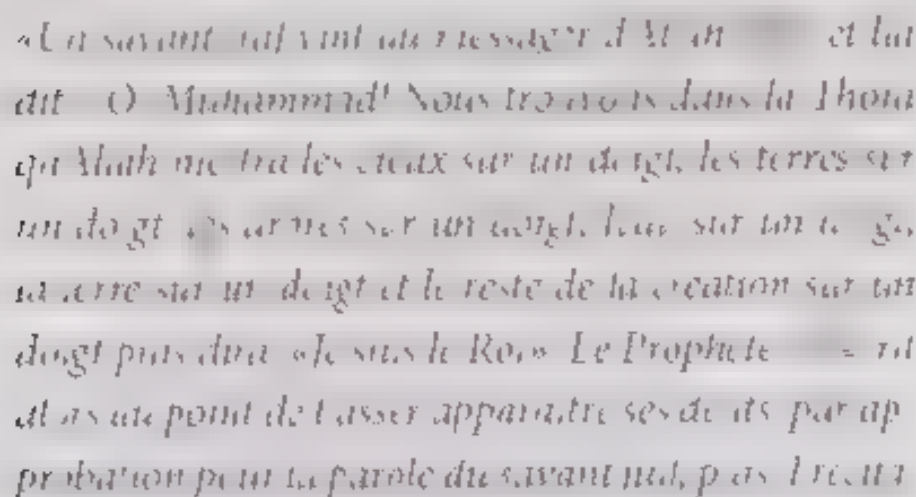 «Un savant juif vint au messager d'Allah et lui
dit O Muhammad! Nous trouvons dans la Thora
qu'Allah mettra les cieux sur un doigt, les terres sur
un doigt les arbres sur un doigt, l'eau sur un doigt,
la terre sur un doigt et le reste de la création sur un
doigt puis dira «Je suis le Roi» Le Prophète rit
au point de laisser apparaître ses dents par ap
probation pour la parole du savant juif, puis